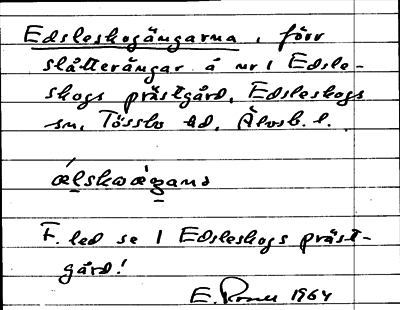 Edsleskogängarna, förr
slåtterängar å nr 1 Edsle-
skogs prästgård, Edsleskogs
sn, Tössbo hd, Älvsb. l.
F. led se 1 Edsleskogs präst-
gård!
E. 1964